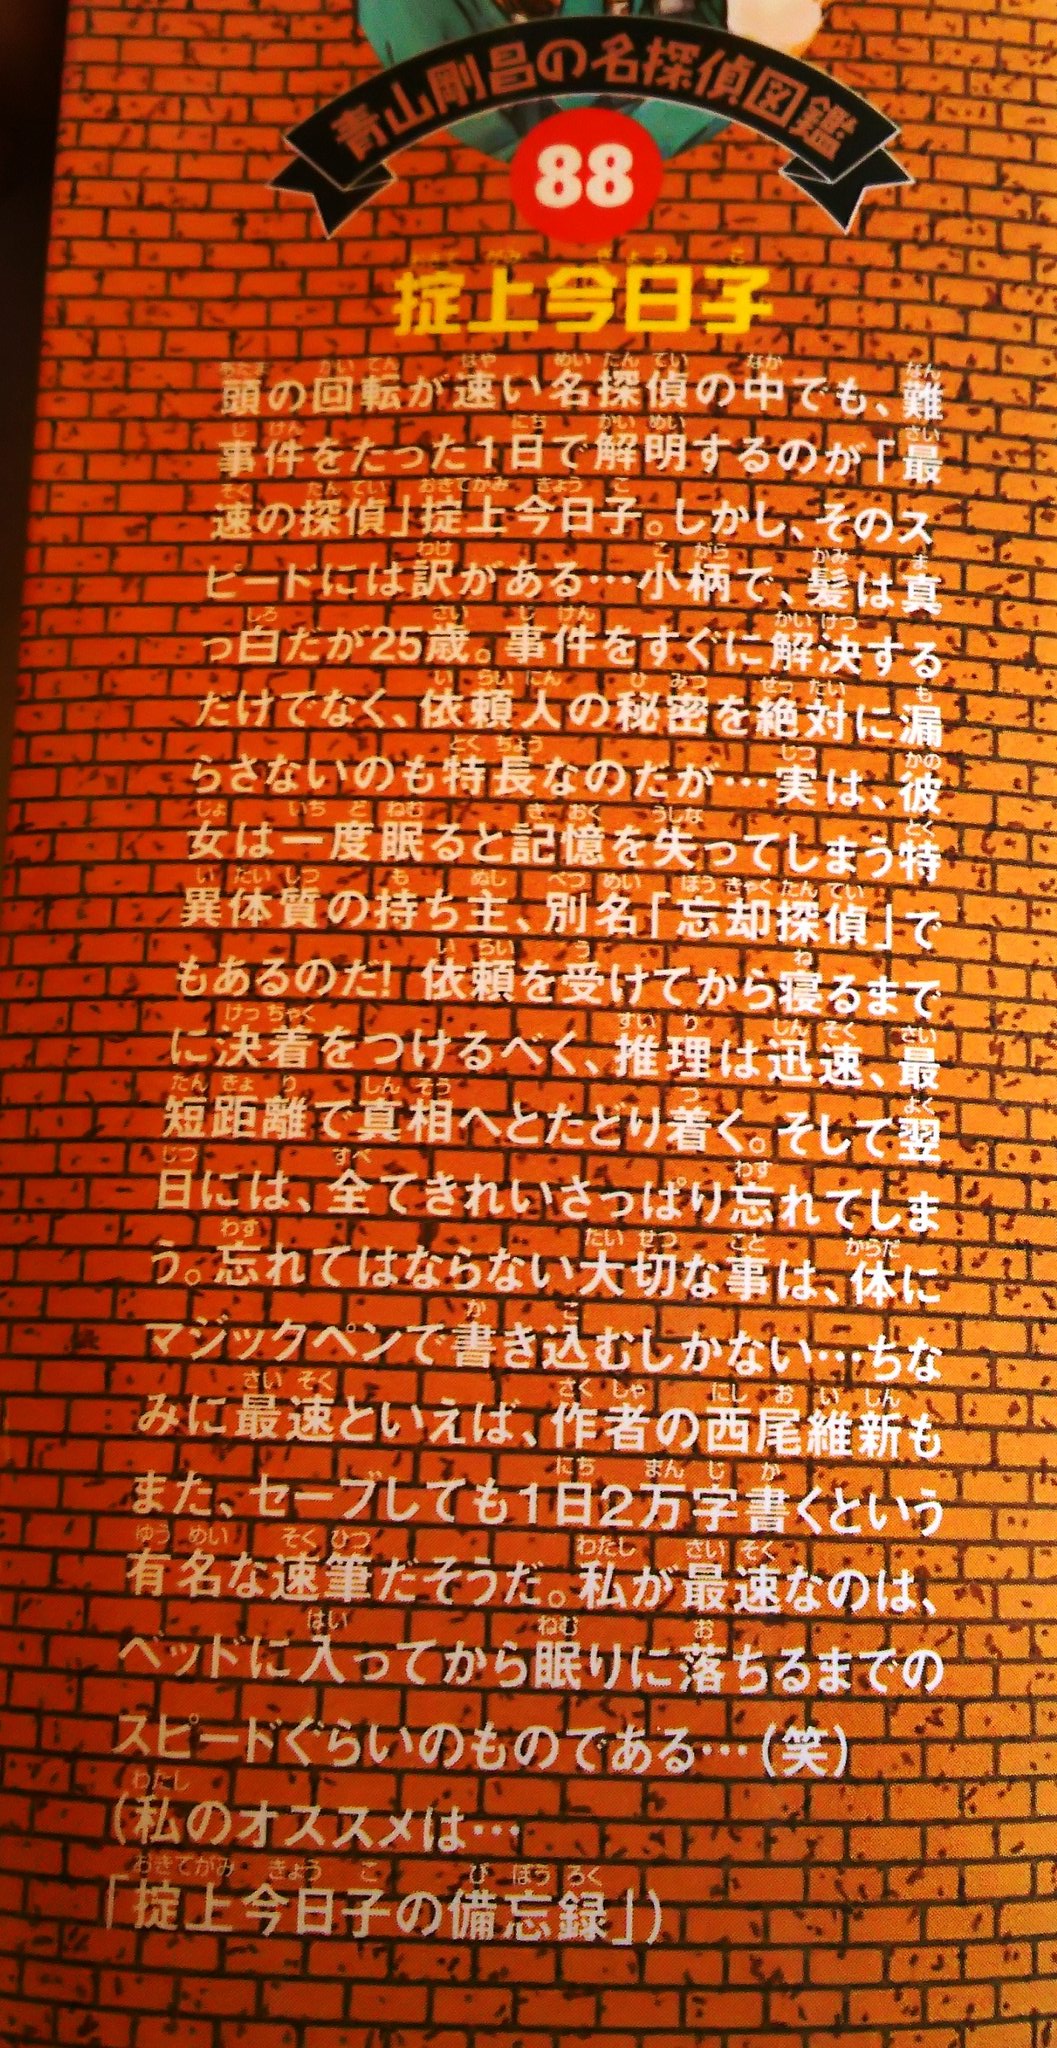 青山剛昌の名探偵図鑑
88
掟上今日子
頭の回転が速い名探偵の中でも、難
事件をたった1日で解明するのが「最
速の探偵」掟上今日子。しかし、そのス
ピードには訳がある…小柄で、髪は真
っ白だが25歳。事件をすぐに解決する
だけでなく、依頼人の秘密を絶対に漏
らさないのも特長なのだが…実は、彼
女は一度眠ると記憶を失ってしまう特
異体質の持ち主、別名「忘却探偵」で
もあるのだ! 依頼を受けてから寝るまで
に決着をつけるべく、推理は迅速、最
短距離で真相へとたどり着く。そして翌
日には、全てきれいさっぱり忘れてしま
う。忘れてはならない大切な事は、体に
マジックペンで書き込むしかない…ちな
みに最速といえば、作者の西尾維新も
また、セーブしても1日2万字書くという
有名な速筆だそうだ。私が最速なのは、
ベッドに入ってから眠りに落ちるまでの
スピードぐらいのものである…(笑)
(私のオススメは…
「掟上今日子の備忘録」)